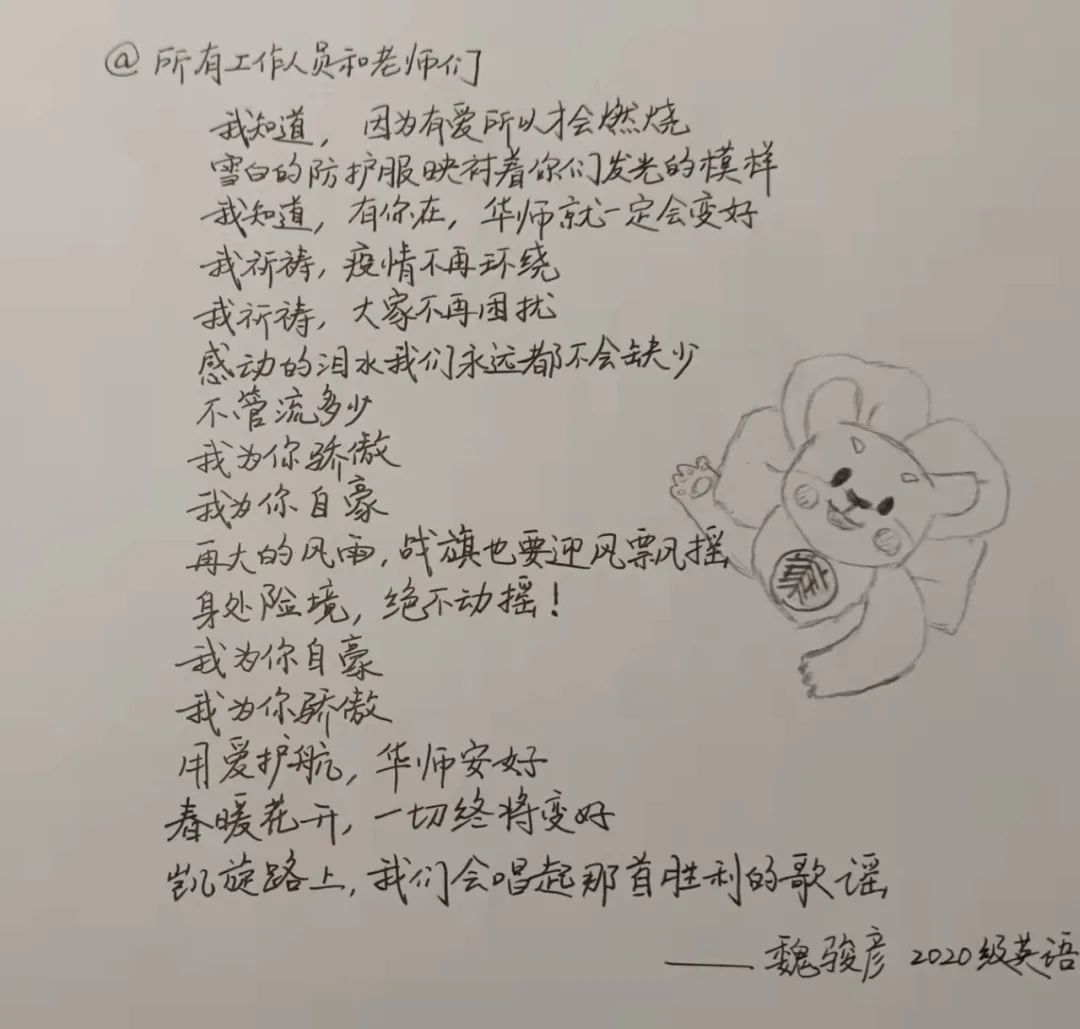 @所有工作人员和老师们
我知道，因为有爱所以才会燃烧
雪白的防护服映衬着你们发光的模样
我知道，有你在，华师就一定会变好
我祈祷，疫情不再环绕
我祈祷，大家不再困扰
感动的泪水我们永远都不会缺少
不管流多少
我为你骄傲
我为你自豪
再大的风雨，战旗也要迎风飘摇
身处险境，绝不动摇！
我为你自豪
我为你骄傲
用爱护航，华师安好
春暖花开，一切终将变好
凯旋路上，我们会唱起那首胜利的歌谣
——魏骏彦 2020级英语